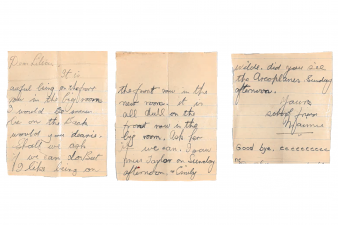 Dear Eileen
It is
awful being on the front
row in the big room
I would
be on the Desk
would you dearie.
shall we ask
if we can
I like being on
the front row in the
next room. it is
all dull on the
front row in the
big room. Ask for
if we can. I saw
Miss Taylor on Sunday
afternoon - Cindy
wilds. did you see
the Aeroplanes Sunday
afternoon.
Yours
from
Good bye. cccccccccc